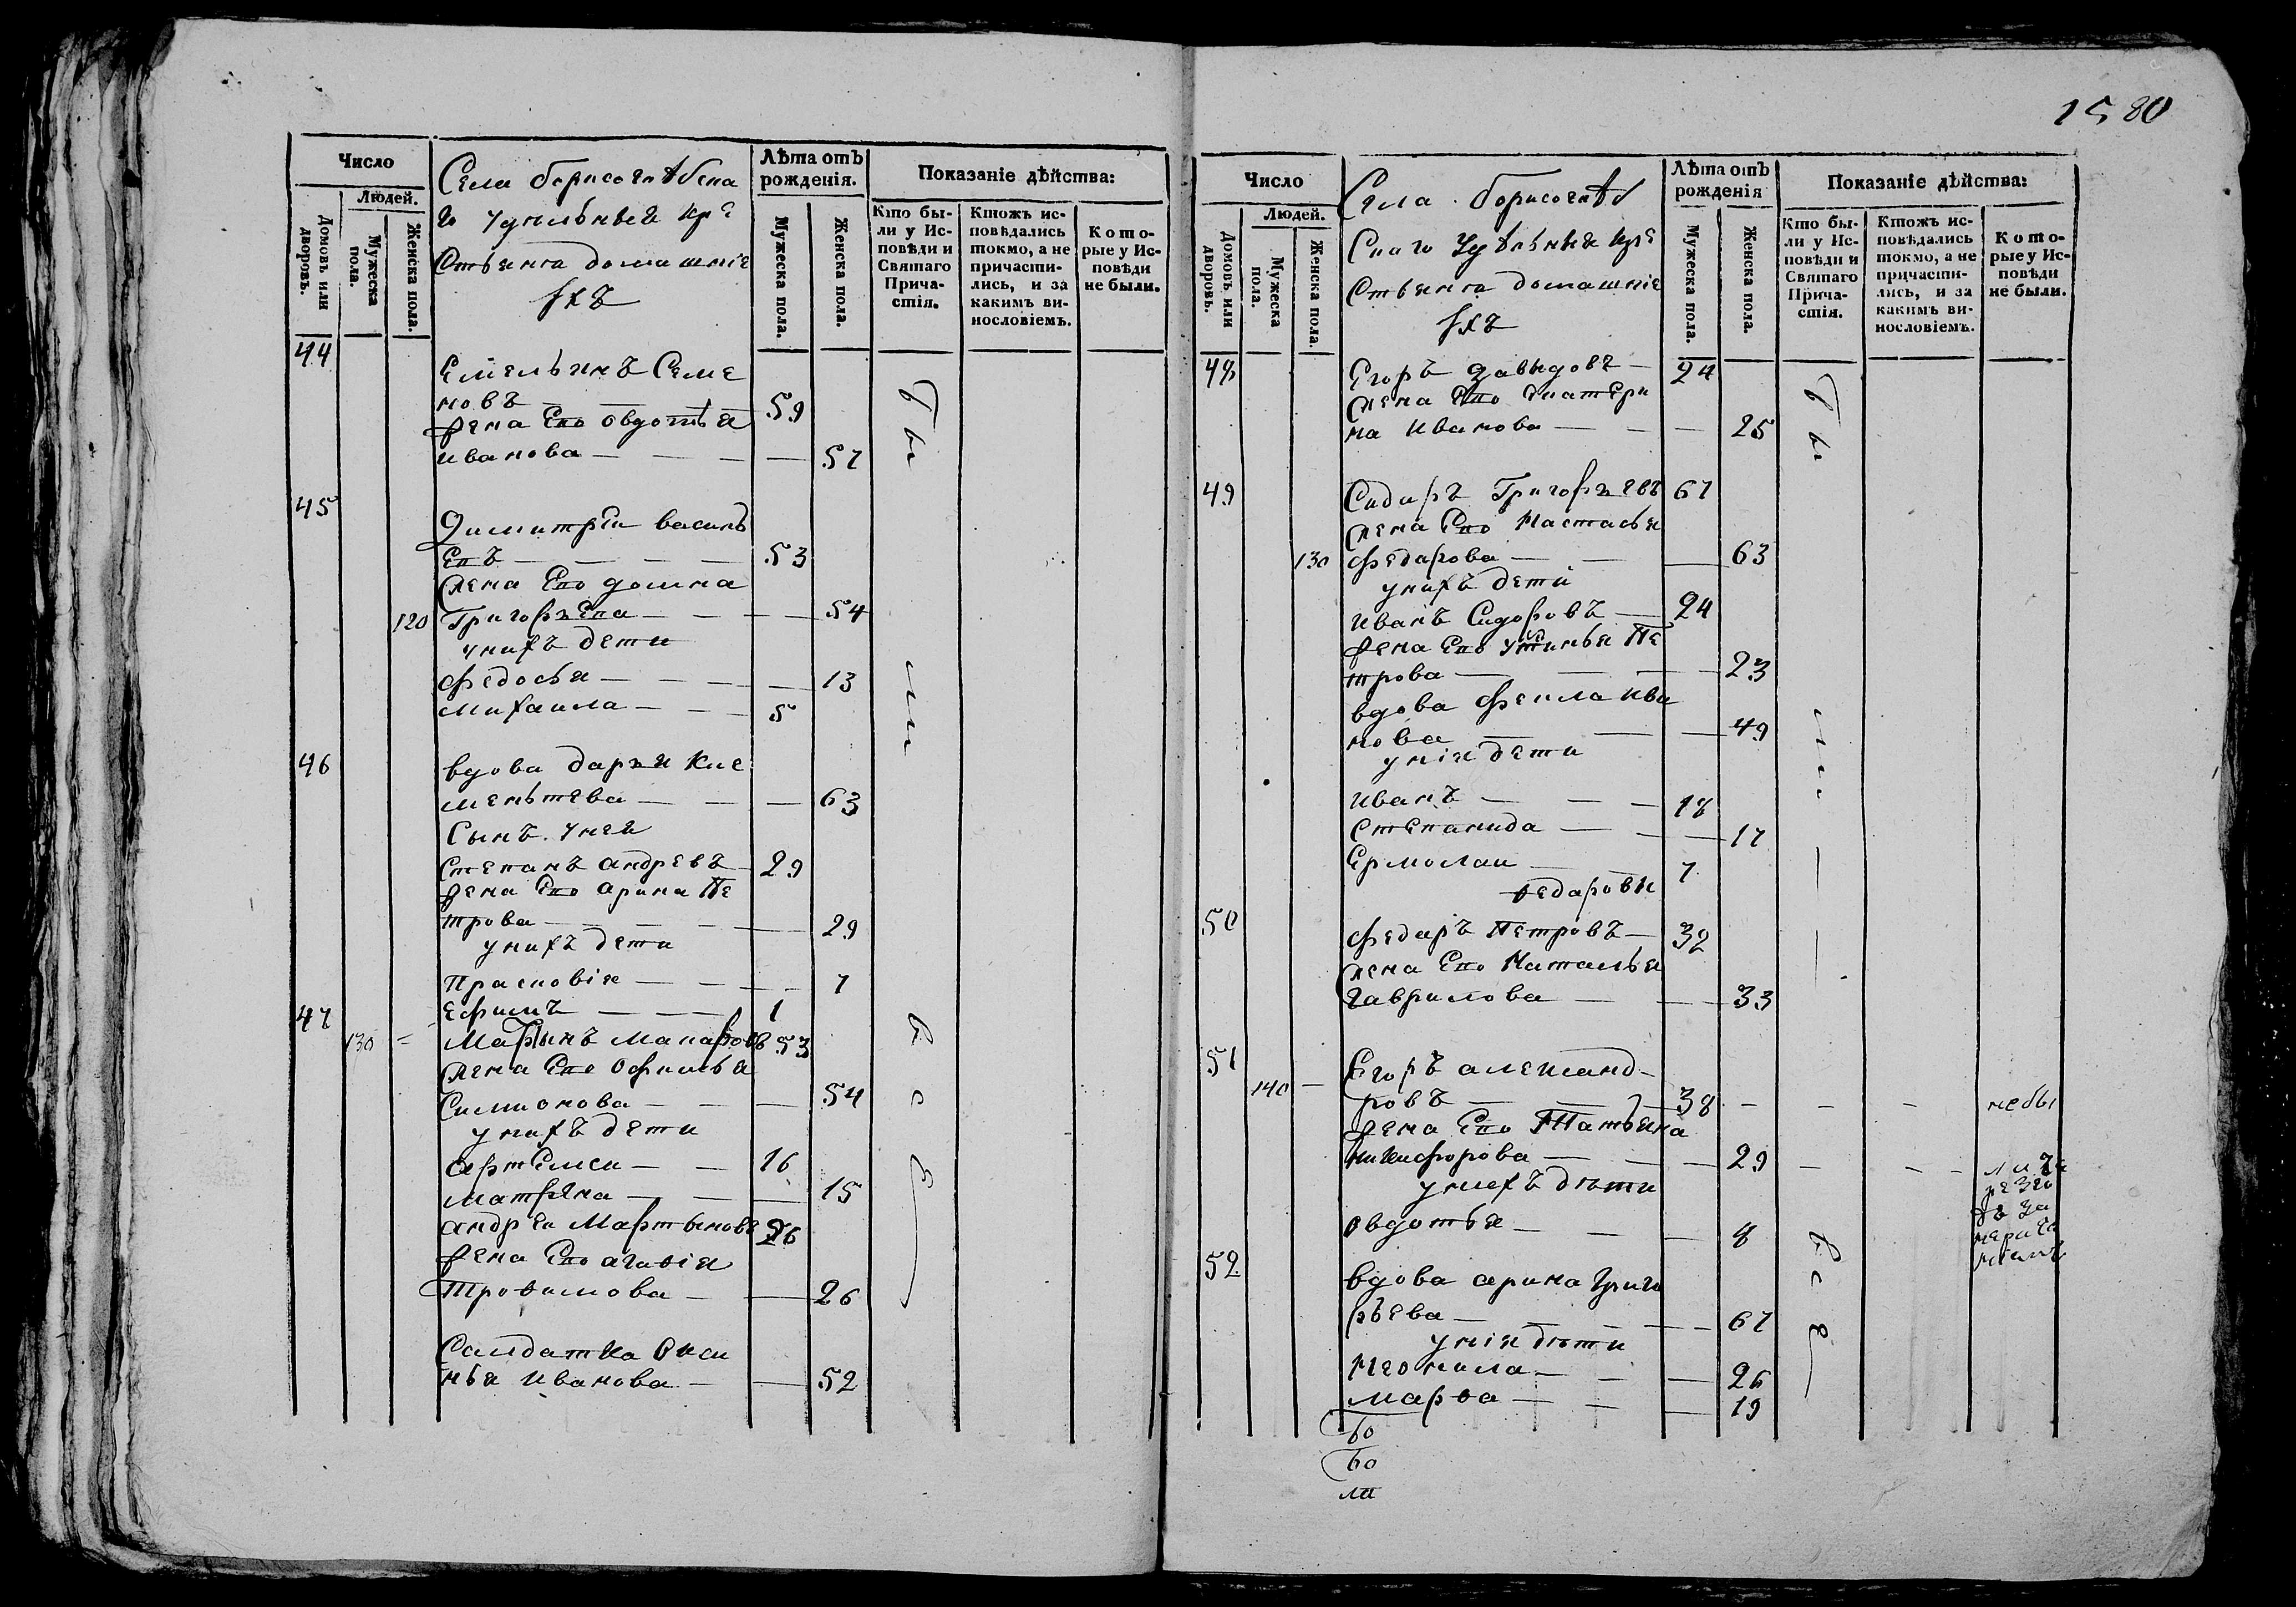 1580
Число
Людей.
Домовъ или дворовъ.
Мужеска пола.
Женска пола.
Села борисоглѣбска
го удѣльныя кре
стьянга домашніе
ихъ
Лѣта отъ рожденія.
Мужеска пола.
Женска пола.
Показаніе дѣйства:
Кто бы-
ли у Ис-
повѣди и
Святаго
Прича-
стія.
Ктожъ ис-
повѣдались
токмо, а не
причасти-
лись, и за
какимъ ви-
нословіемъ.
Кото-
рые у Ис-
повѣди
не были.
44
Емельянъ Семе
новъ — 59
жена Его овдотья
иванова — 57
45
ДимитрEй василь
Евъ — 53
жена Его домна
120 ГригорьEва — 54
унихъ дети
Федосья — 13
михаила — 5
46
вдова дарья кле
меньтева — 63
Сынъ унея
Степанъ андревъ 29
жена Его арина Пе
трова — 29
унихъ дети
Прасковія — 7
ефимъ — 1
47
130 Мартынъ Макаровъ 53
жена Его Офимья
Симионова — 54
унихъ дети
артEмеи — 16
матрена — 15
андреи Мартыновъ 26
жена Его агафія
Трофимова — 26
Салдатка Окси
нья Иванова — 52
Бы
ли
все
Число
Людей.
Домовъ или дворовъ.
Мужеска пола.
Женска пола.
Села борисоглѣб
скаго удѣльныя кре
стьянга домашніе
ихъ
Лѣта отъ рожденія
Мужеска пола.
Женска пола.
Показаніе дѣйства:
Кто бы-
ли у Ис-
повѣди и
Святаго
Прича-
стія.
Ктожъ ис-
повѣдались
токмо, а не
причасти-
лись, и за
какимъ ви-
нословіемъ.
Кото-
рые у Ис-
повѣди
не были.
48
Егоръ Давыдовъ — 24
жена Его Екатери
на иванова — 25
49
Сидиръ Григорьевъ 67
жена Его Настасья
130 Федарова — 63
унихъ дети
иванъ Сидоровъ — 24
жена Его устинья Пе
трова — 23
вдова Фекла ива
нова — 49
унія дети
иванъ — 18
степанида — 17
Ермолаи — 7
ѳедаровы
50
Федаръ Петровъ — 32
жена Его Наталья
гаврилова — 33
51
Егоръ александ-
140 ровъ — 38
жена Его Татьяна
никифорова — 29
унихъ дѣти
овдотья — 8
52
вдова арина григо
рьева — 67
унія дѣти
Неонила — 26
марѳа — 19
бо
бо
ли
Бы
ли
все
небы
ли